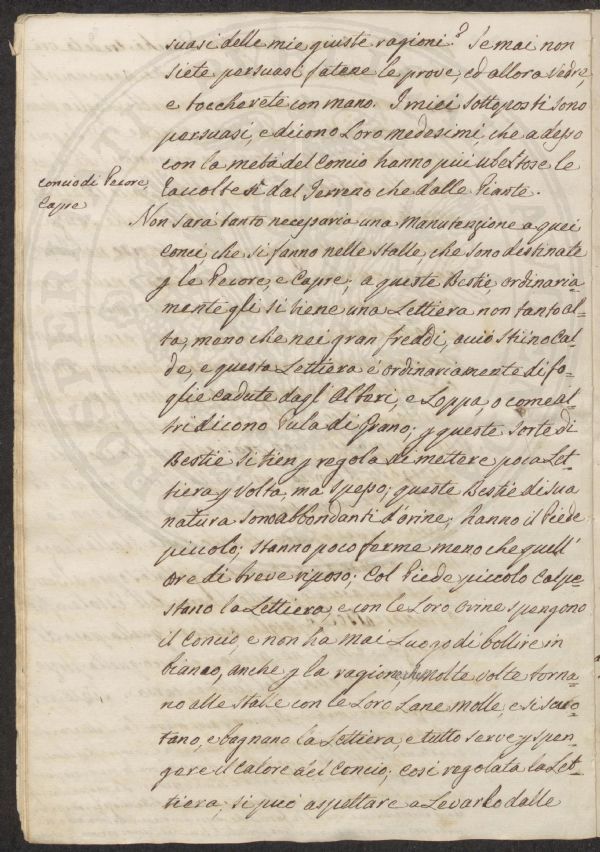 suasi delle mie giuste ragioni? Se mai non
siete persuasi fatene le prove, ed allora vedre,
e toccherete con mano. I miei sottoposti sono
persuasi, e dicono Loro medesimi, che adesso
con la metà del Concio hanno più ubertose le
Raccolte sì dal Terreno che dalle Piante.
concio di Pecore,
Capre
Non sarà tanto necessaria una Manutenzione a quei
Conci, che si fanno nelle Stalle, che sono destinate
p le Pecore, e Capre, a queste Bestie, ordinaria-
mente gli si tiene una Lettiera non tanto al-
ta, meno che nei gran freddi, acciò stiino cal-
de, e questa Lettiera è ordinariamente di fo-
glie cadute dagl'Alberi, e Loppa, o come al-
tri dicono Pula di Grano; p queste sorte di
Bestie si tien p regola di mettere poca Let-
tiera p volta, ma spesso; queste Bestie di sua
natura sono abbondanti d'orine; hanno il Piede
piccolo; stanno poco ferme meno che quell'
ore di breve riposo; Col Piede piccolo calpe-
stano la Lettiera, e con le Loro orine spengono
il Concio, e non ha mai Luogo di bollire in
bianco, anche p la ragione, che molte volte torna-
no alle stalle con le Loro Lane Molle, e si scuo-
tano, e bagnano la Lettiera, e tutto serve p spen-
gere il Calore del Concio; così regolata la Let-
tiera, si può aspettare a Levarlo dalle